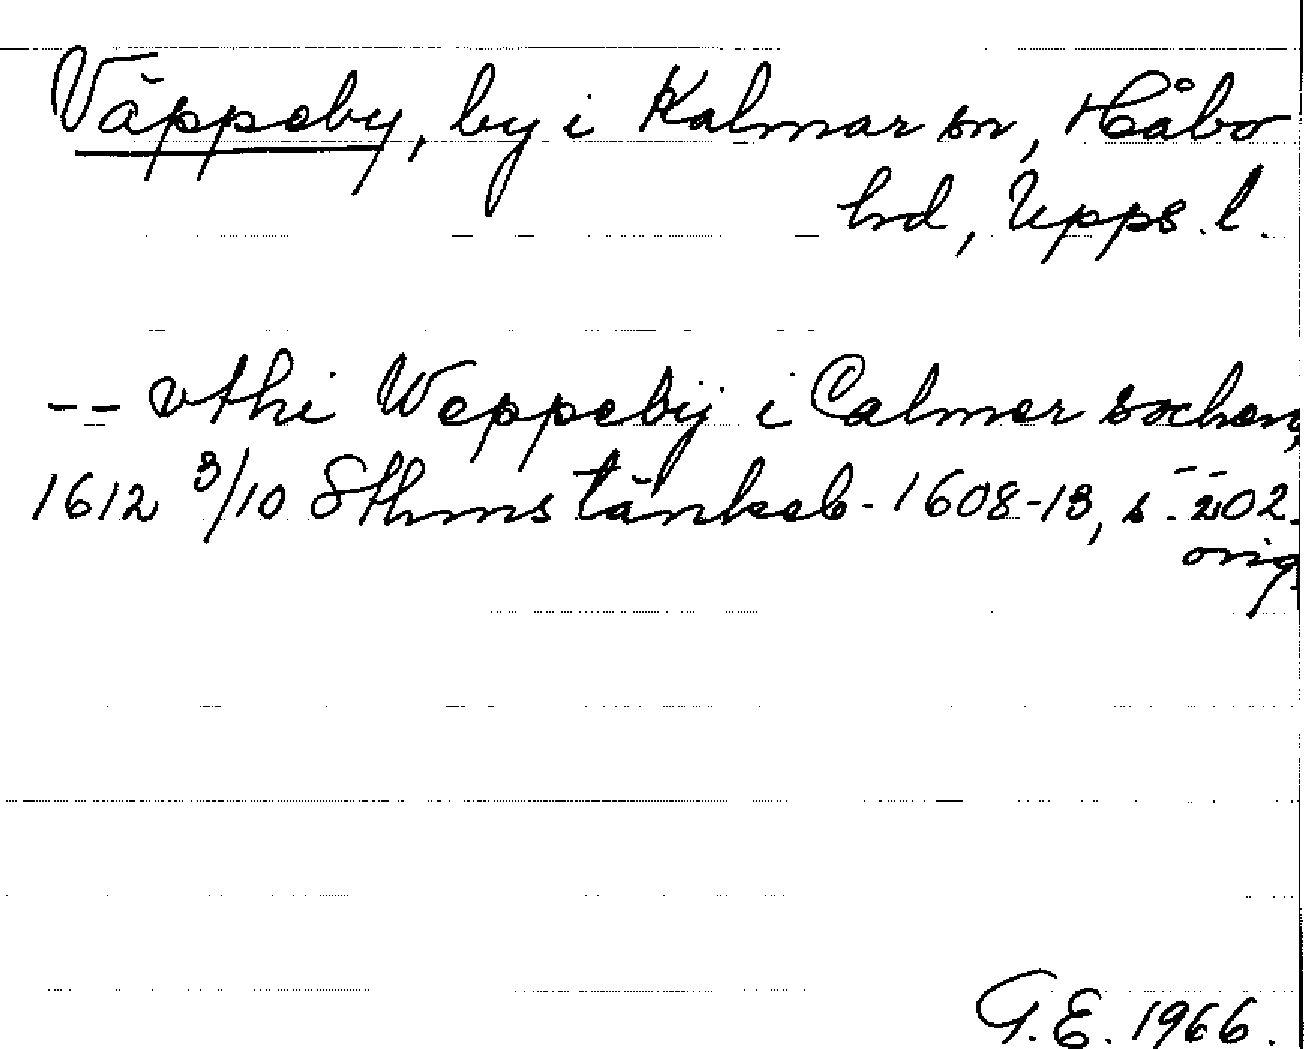 Väppeby, by i Kalmar sn, Håbo
hd, Upps. l.
-- vthi Weppebÿ i Calmer sochen,
1612 3/10 Sthms tänkeb. 1608-13, s. 202.
orig.
G.E. 1966.